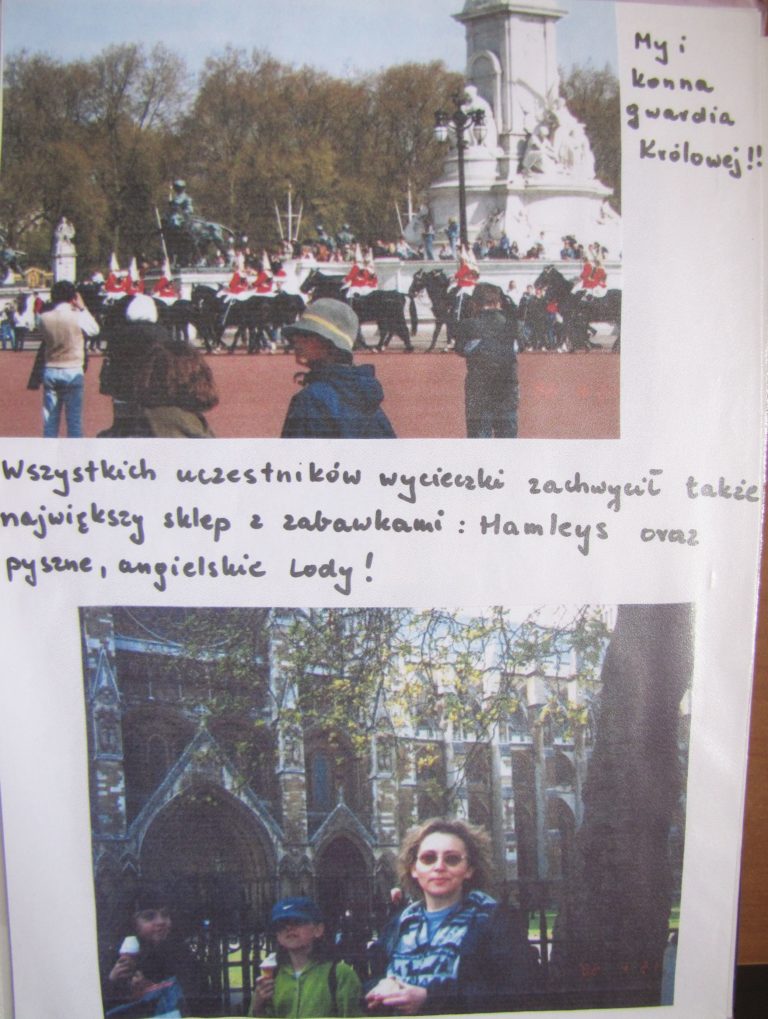 My i
konna
gwardia
Królowej!!
Wszystkich uczestników wycieczki zachwycił także
największy sklep z zabawkami: Hamleys oraz
pyszne, angielskie lody!